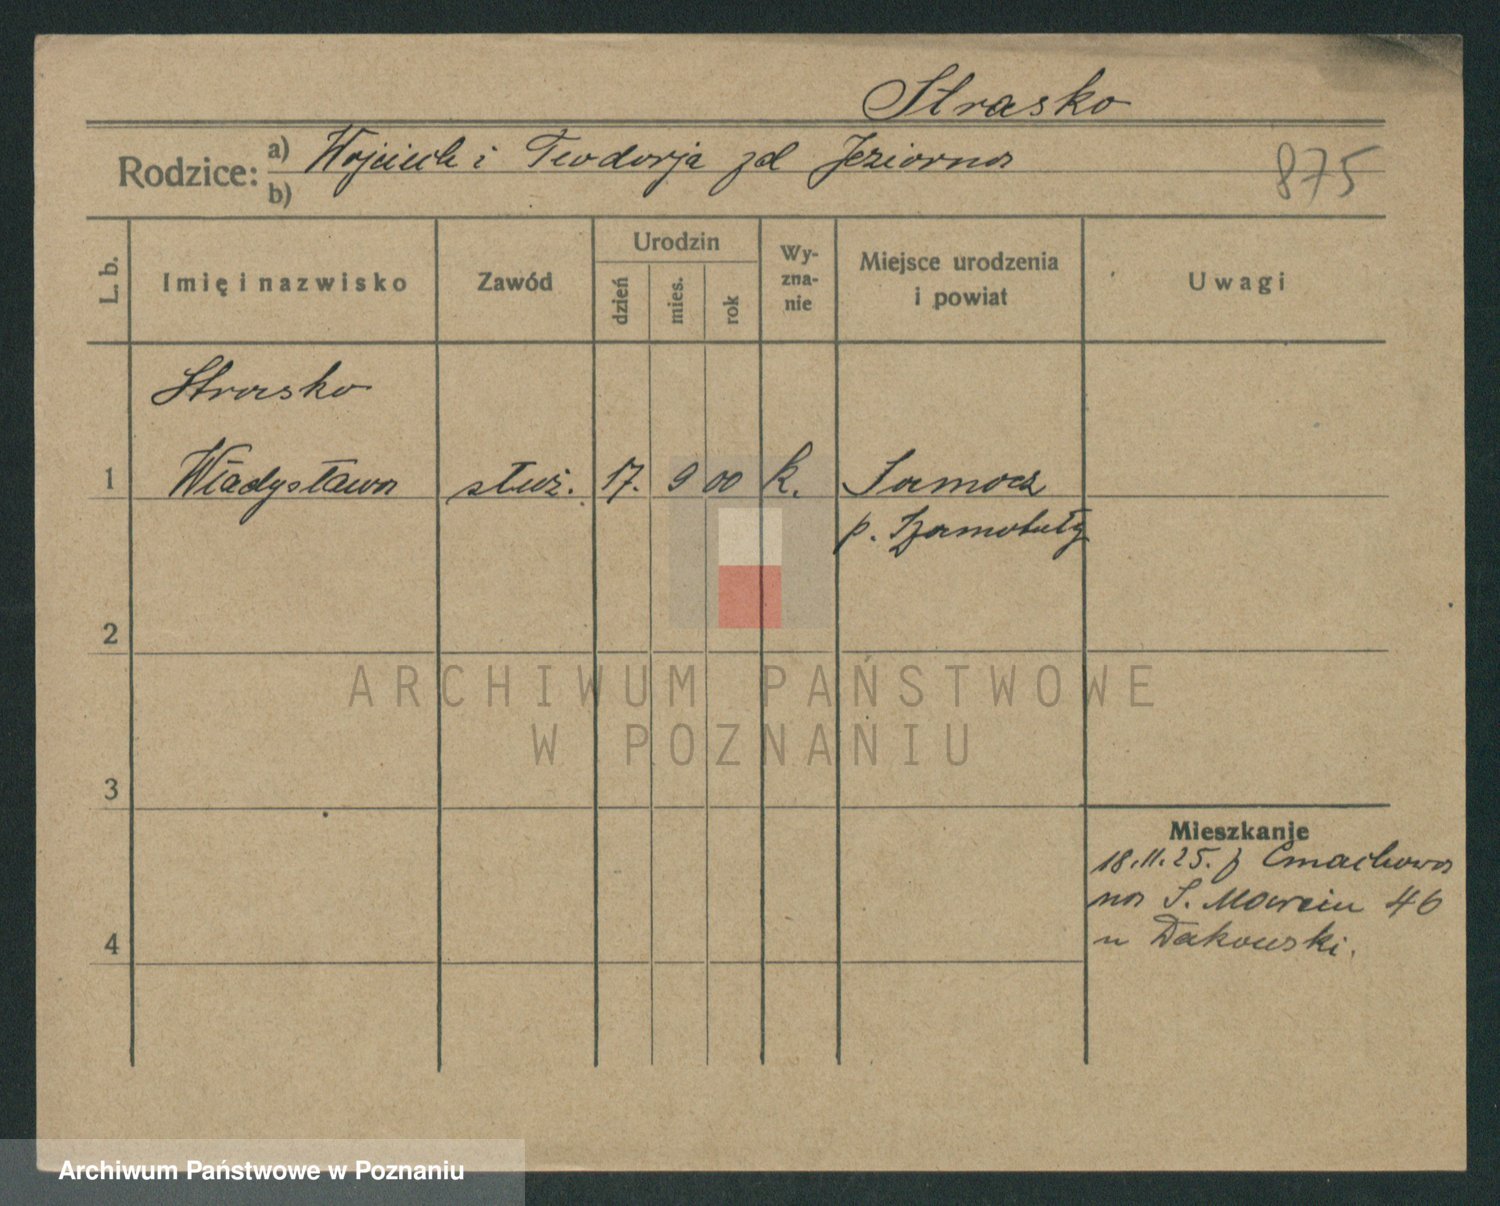 Strasko
Rodzice: a) Wojciech i Teodorja zd Jeziorna
b)
875
L. b.
Imię i nazwisko
Zawód
Urodzin
dzień
mies.
rok
Wy-
zna-
nie
Miejsce urodzenia
i powiat
Uwagi
Strasko
1 Władysława służ. 17. 9 00 k. Samocz
p. Szamotuły
2
ARCHIWUM PAŃSTWOWE
W POZNANIU
3
Mieszkanie
18.11.25. z Cmachowa
na S. Marcin 46
u Dakowski.
4
Archiwum Państwowe w Poznaniu